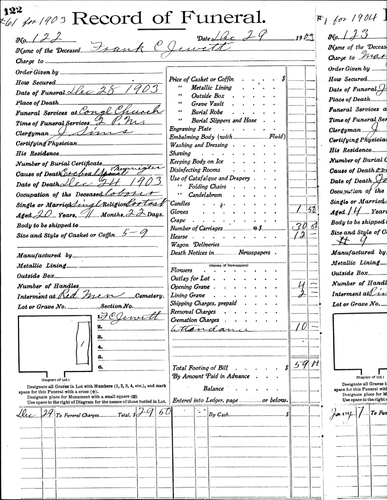 122
#61 for 1903
Record of Funeral.
No. 122 Date Dec 29 1903
Name of the Deceased Frank C Jewitt
Charge to
Order Given by
How Secured
Date of Funeral Dec 28 1903
Place of Death
Funeral Services at Congl Church
Time of Funeral Services 2 P.M.
Clergyman J Sims
Certifying Physician
His Residence
Number of Burial Certificate
Cause of Death
Date of Death Dec 24 1903
Occupation of the Deceased Laborer
Single or Married Single Religion Protest
Aged 20 Years, 11 Months, 22 Days
Body to be shipped to
Size and Style of Casket or Coffin 5-9
Manufactured by
Metallic Lining
Outside Box
Number of Handles
Interment at Red Men Cemetery.
Lot or Grave No. Section No.
1. F C Jewitt
2.
3.
4.
5.
6.
(Diagram of Lot.)
Designate all Graves in Lot with Numbers (1, 2, 3, 4, etc.), and mark
space for this Funeral with a cross (+).
Designate place for Monument with a small square (□).
Use space to the right of Diagram for the names of those buried in Lot.
Price of Casket or Coffin $
" Metallic Lining
" Outside Box
" Grave Vault
" Burial Robe
" Burial Slippers and Hose
Engraving Plate
Embalming Body (with Fluid)
Washing and Dressing
Shaving
Keeping Body on Ice
Disinfecting Rooms
Use of Catafalque and Drapery
" Folding Chairs
" Candelabrum
Candles
Gloves 1 50
Crape
Number of Carriages @ $ 30
Hearse 12
Wagon Deliveries
Death Notices in Newspapers
(Names of Newspapers)
Flowers
Outlay for Lot
Opening Grave 4
Lining Grave 2
Shipping Charges, prepaid
Removal Charges
Cremation Charges
Attendance 10
Total Footing of Bill $ 59
By Amount Paid in Advance
Balance
Entered into Ledger, page or below.
Dec 29 To Funeral Charges Total, $ 59 50 By Cash $
#1 for 1904
123
No. 123
Name of the Deceased
Charge to
Order Given by
How Secured
Date of Funeral
Place of Death
Funeral Services
Time of Funeral
Clergyman J
Certifying Physician
His Residence
Number of Burial
Cause of Death
Date of Death
Occupation of the
Single or Married
Aged 14 Years,
Body to be shipped
Size and Style of
# 9
Manufactured by
Metallic Lining
Outside Box
Number of Handles
Interment at
Lot or Grave No.
(Diagram of Lot.)
Designate all Graves
space for this Funeral
Designate place for
Use space to the right
Jany 1 To Funeral